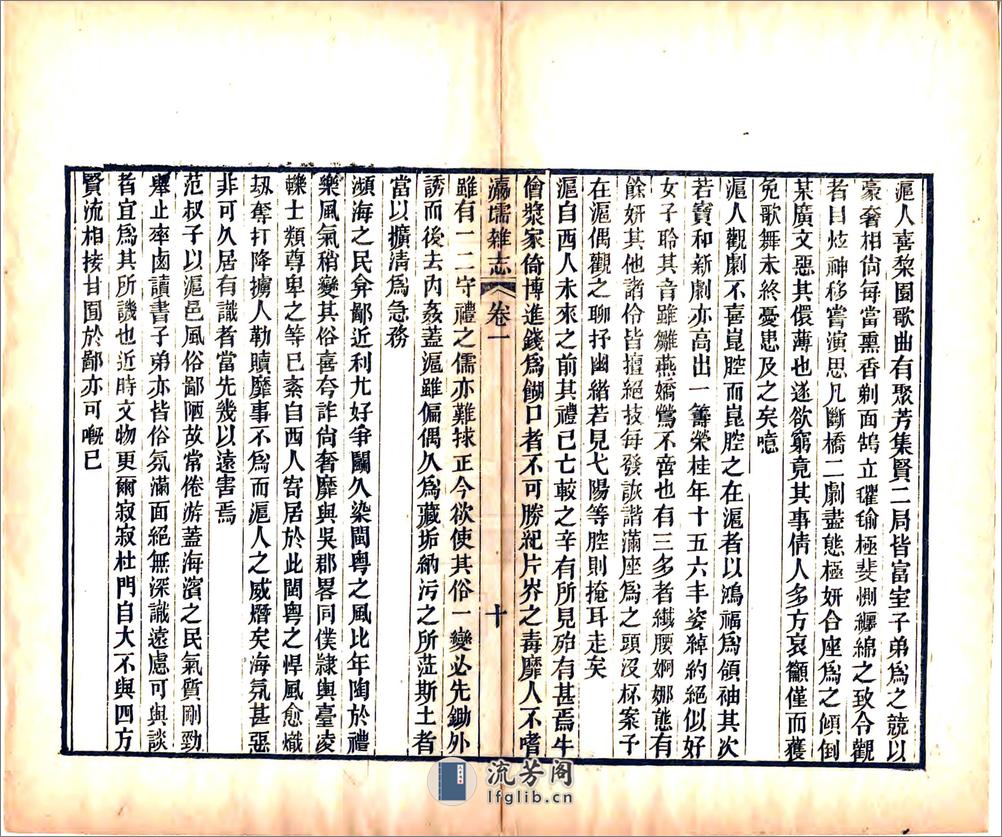 滬人喜棃園歌曲有聚芳集賢二局皆富室子弟爲之競以
豪奢相尙每當熏香剃面鵠立氍毹極斐惻纒綿之致令觀
者目炫神移嘗演思凡斷橋二劇盡態極妍合座爲之傾倒
某廣文惡其儇薄也遂欲窮竟其事倩人多方哀籲僅而獲
免歌舞未終憂患及之矣噫
滬人觀劇不喜崑腔而崑腔之在滬者以鴻福爲領袖其次
若寳和新劇亦高出一籌榮桂年十五六丰姿綽約絕似好
女子聆其音雖雛燕嬌鶯不啻也有三多者纎腰婀娜態有
餘妍其他諸伶皆擅絕技每發詼諧滿座爲之頭沒杯案予
在滬偶觀之聊抒幽緒若見弋陽等腔則掩耳走矣
滬自西人未來之前其禮已亡較之辛有所見殆有甚焉牛
儈漿家倚博進錢爲餬口者不可勝紀片芥之毒靡人不嗜
瀛壖雜志
卷一
十
雖有一二守禮之儒亦難捄正今欲使其俗一變必先鋤外
誘而後去內姦蓋滬雖偏偶久爲藏垢納污之所蒞斯土者
當以擴淸爲急務
瀕海之民弇鄙近利尢好爭鬭久染閩粤之風比年陶於禮
樂風氣稍變其俗喜夸詐尙奢靡與吳郡畧同僕隸輿臺凌
轢士類尊卑之等已紊自西人寄居於此閩粤之悍風愈熾
刼奪打降擄人勒贖靡事不爲而滬人之威熸矣海氛甚惡
非可久居有識者當先幾以遠害焉
范叔子以滬邑風俗鄙陋故常倦游蓋海濱之民氣質剛勁
舉止率鹵讀書子弟亦皆俗氛滿面絕無深識遠慮可與談
者宜爲其所譏也近時文物更爾寂寂杜門自大不與四方
賢流相接甘囿於鄙亦可嘅已
流芳阁
lfglib.cn